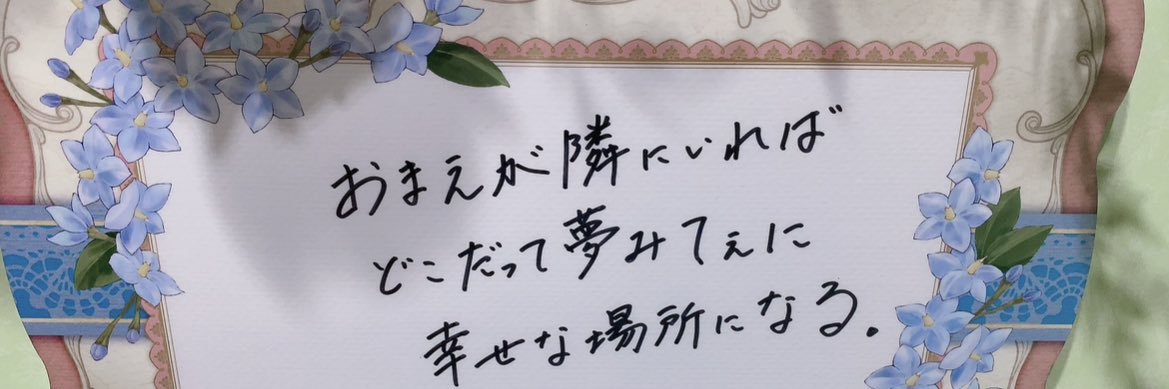 おまえが隣にいれば
どこだって夢みてぇに
幸せな場所になる。